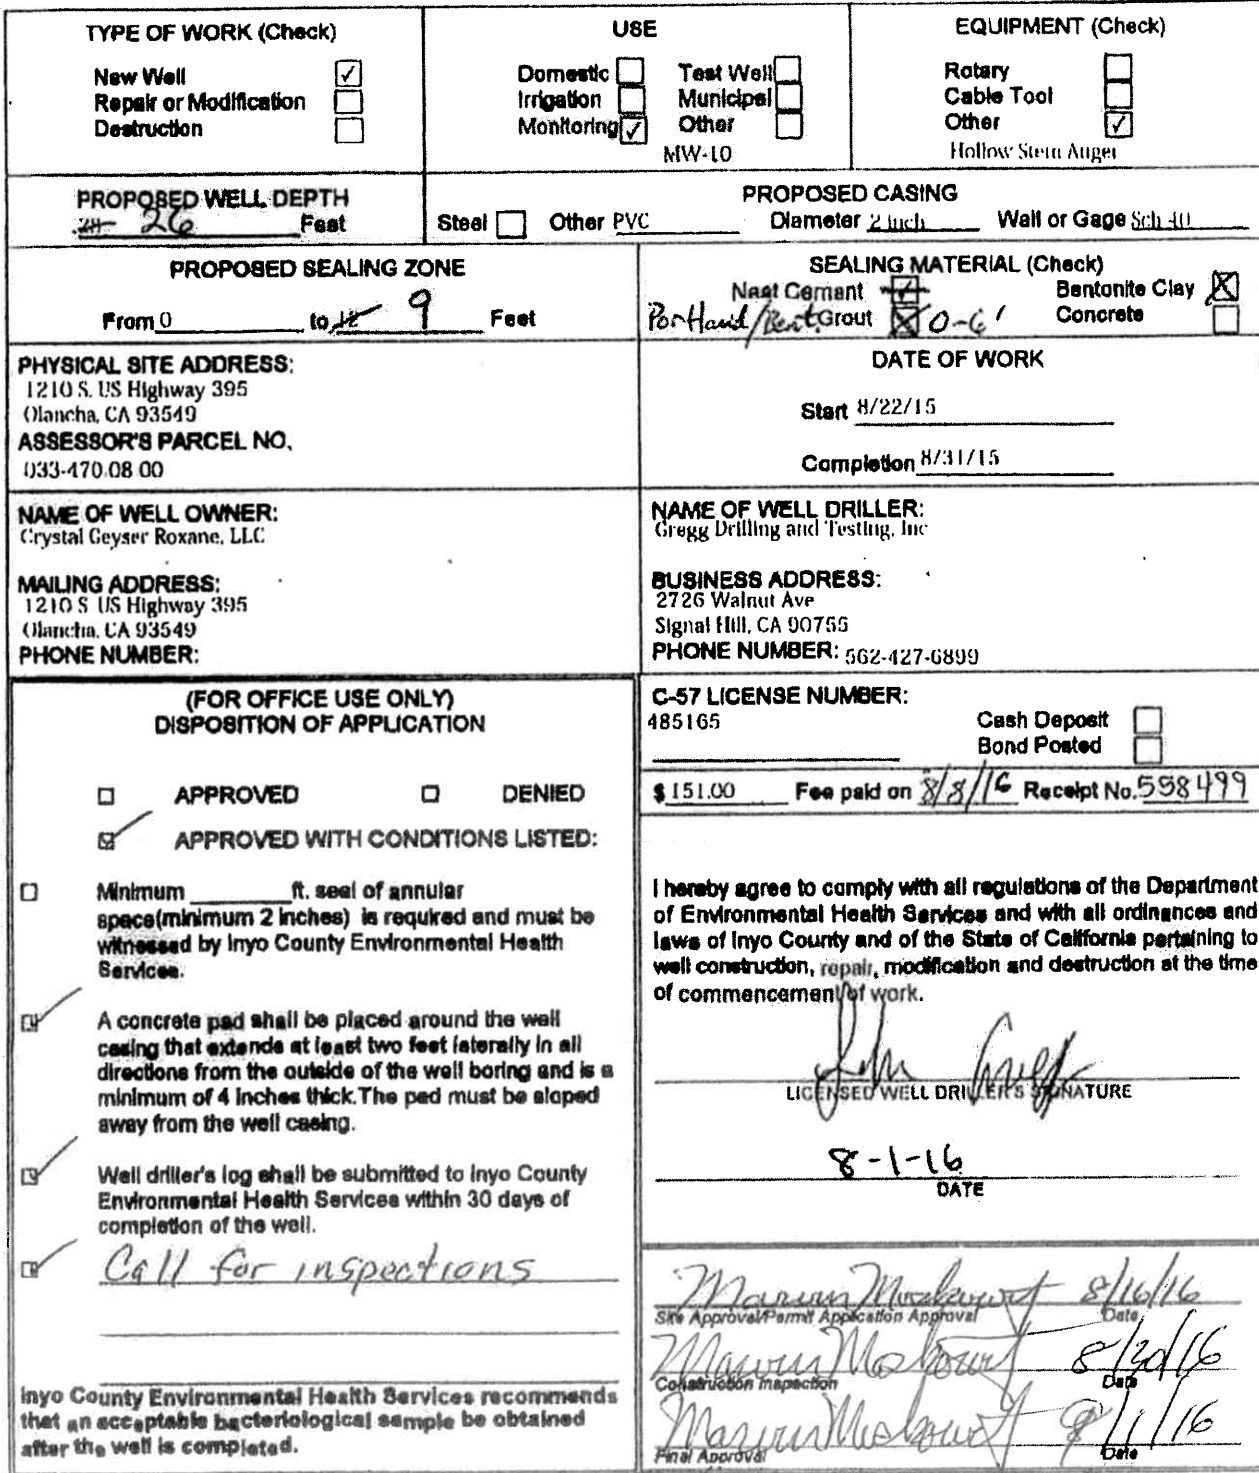 TYPE OF WORK (Check)
New Well ✓
Repair or Modification
Destruction
USE
Domestic Test Well
Irrigation Municipal
Monitoring ✓ Other
MW-10
EQUIPMENT (Check)
Rotary
Cable Tool
Other ✓
Hollow Stem Auger
PROPOSED WELL DEPTH
26 Feet
PROPOSED CASING
Steel Other PVC Diameter 2 inch Wall or Gage Sch 40
PROPOSED SEALING ZONE
From 0 to 12 9 Feet
SEALING MATERIAL (Check)
Neat Cement ✓ Bentonite Clay X
Portland/Bent. Grout X 0-6' Concrete
PHYSICAL SITE ADDRESS:
1210 S. US Highway 395
Olancha, CA 93549
ASSESSOR'S PARCEL NO.
033-470-08-00
DATE OF WORK
Start 8/22/15
Completion 8/31/15
NAME OF WELL OWNER:
Crystal Geyser Roxane, LLC
MAILING ADDRESS:
1210 S US Highway 395
Olancha, CA 93549
PHONE NUMBER:
NAME OF WELL DRILLER:
Gregg Drilling and Testing, Inc
BUSINESS ADDRESS:
2726 Walnut Ave
Signal Hill, CA 90755
PHONE NUMBER: 562-427-6899
(FOR OFFICE USE ONLY)
DISPOSITION OF APPLICATION
APPROVED DENIED
✓ APPROVED WITH CONDITIONS LISTED:
Minimum ______ ft. seal of annular
space(minimum 2 inches) is required and must be
witnessed by Inyo County Environmental Health
Services.
✓ A concrete pad shall be placed around the well
casing that extends at least two feet laterally in all
directions from the outside of the well boring and is a
minimum of 4 inches thick. The pad must be sloped
away from the well casing.
✓ Well driller's log shall be submitted to Inyo County
Environmental Health Services within 30 days of
completion of the well.
✓ Call for inspections
Inyo County Environmental Health Services recommends
that an acceptable bacteriological sample be obtained
after the well is completed.
C-57 LICENSE NUMBER:
485165 Cash Deposit
Bond Posted
$ 151.00 Fee paid on 8/8/16 Receipt No. 558499
I hereby agree to comply with all regulations of the Department
of Environmental Health Services and with all ordinances and
laws of Inyo County and of the State of California pertaining to
well construction, repair, modification and destruction at the time
of commencement of work.
LICENSED WELL DRILLER'S SIGNATURE
8-1-16
DATE
8/16/16
Site Approval/Permit Application Approval Date
8/30/16
Construction Inspection Date
9/1/16
Final Approval Date